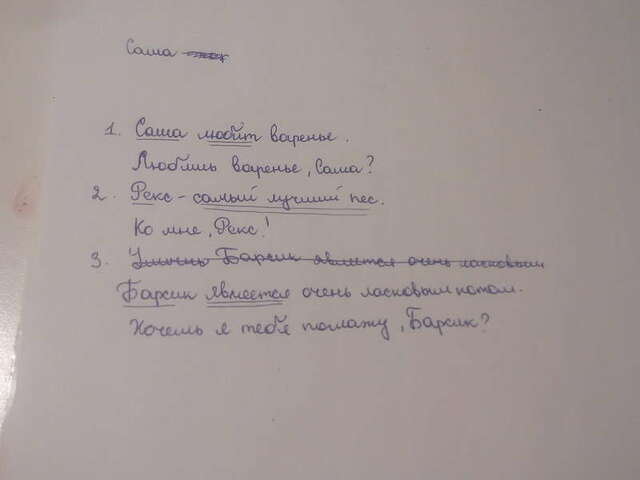 Саша
1. Саша любит варенье.
Любишь варенье, Саша?
2. Рекс - самый лучший пес.
Ко мне, Рекс!
3. Барсик является очень ласковым
Барсик является очень ласковым котом.
Хочешь я тебя поглажу, Барсик?